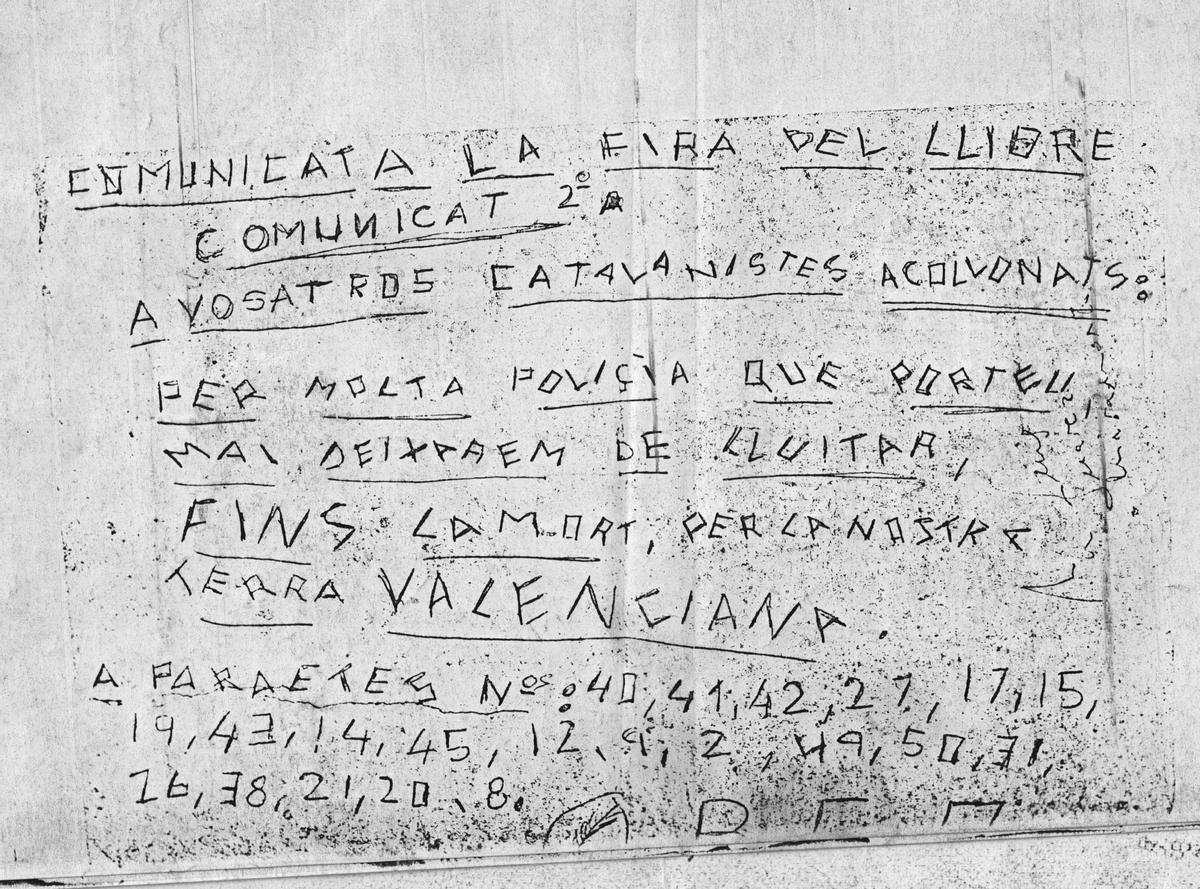 COMUNICAT A LA FIRA DEL LLIBRE
COMUNICAT 2º
A VOSATROS CATALANISTES ACOLLONATS:
PER MOLTA POLIÇÌA QUE PORTEU
MAI DEIXAREM DE LLUITAR,
FINS LA MORT, PER LA NOSTRA
TERRA VALENCIANA.
A PARAETES Nos: 40, 41, 42, 27, 17, 15,
19, 43, 14, 45, 12, 9, 2, 49, 50, 31,
26, 38, 21, 20, 8.